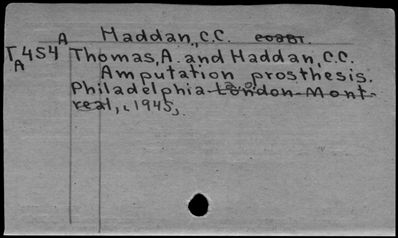 A Haddan, C.C.
T454 Thomas, A. and Haddan, C.C.
A Amputation prosthesis.
Philadelphia London Mont-
real, c1945.